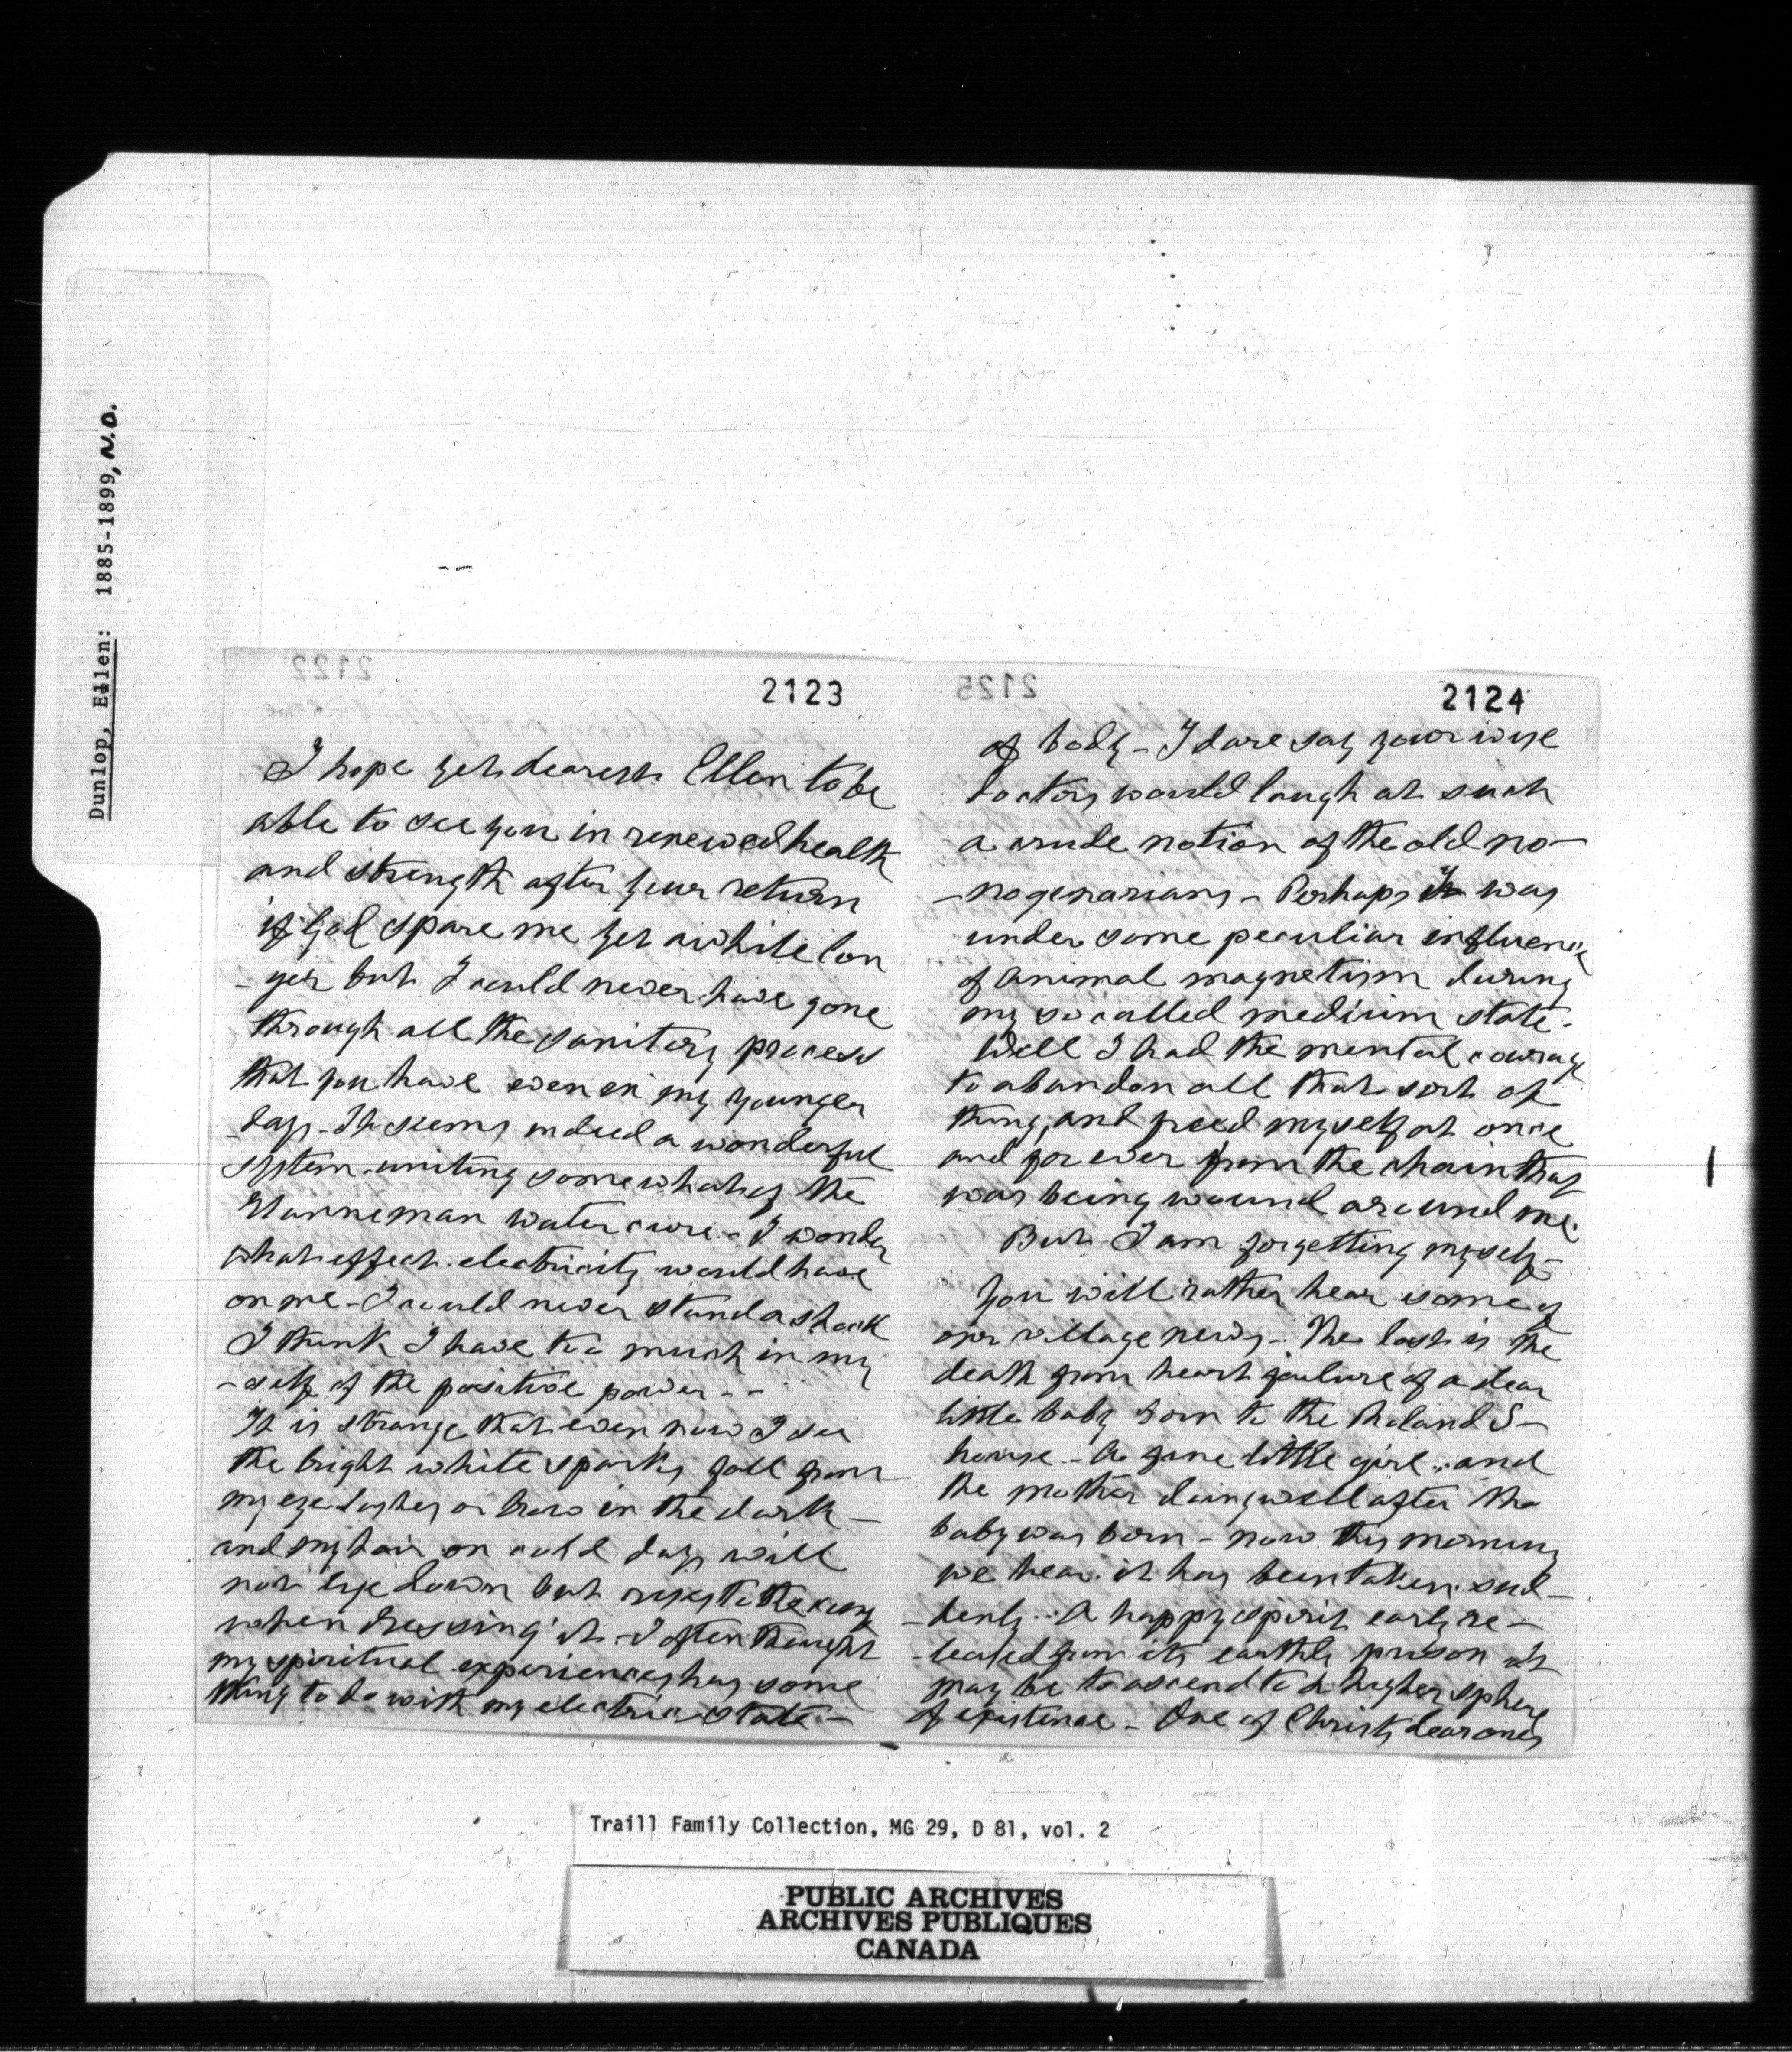 Dunlop, Ellen: 1885-1899, N.D.
2123
I hope yet dearest Ellen to be
able to see you in renewed health
and strength after your return
if God spare me yet awhile lon
-ger but I could never have gone
through all the sanitory process
that you have even in my younger
days - It seems indeed a wonderful
system uniting somewhat of the
water cure - I wonder
what effect electricity would have
on me - I could never stand a shock
I think I have too much in my
-self of the positive power - -
It is strange that even now I see
the bright white sparks fall from
my eye lashes or brow in the dark -
and my hair on cold days will
not lye down but rises to the
when dressing it - I often thought
my spiritual experiences has some
thing to do with my electric state -
2124
of body - I dare say your wise
doctors would laugh at such
a crude notion of the old no-
-nogenarians - Perhaps I was
under some peculiar influence
of animal magnetism during
my so called medium state.
Well I had the mental courage
to abandon all that sort of
thing, and freed myself at once
and for ever from the chain that
was being wound around me.
But I am forgetting myself -
You will rather hear some of
our village news - The last is the
death from heart failure of a dear
little baby born to the Roland S-
house - A fine little girl - and
the mother doing well after the
baby was born - now this morning
we hear it has been taken sud-
-denly - A happy spirit early re-
-leased from its earthly prison it
may be to ascend to a higher sphere
of existence - One of Christs dear ones
2122
2125
Traill Family Collection, MG 29, D 81, vol. 2
PUBLIC ARCHIVES
ARCHIVES PUBLIQUES
CANADA